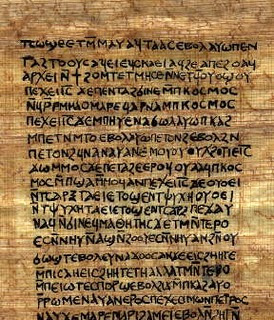 ⲡⲥⲱϣⲉ ⲉⲧⲙ̅ⲙⲁⲩ ⲁϥⲧⲁⲁⲥ ⲉⲃⲟⲗ ⲁⲩⲱ ⲡⲉⲛ
ⲧⲁϩⲧⲟⲟⲩⲥ ⲁϥⲉⲓ ⲉϥⲥⲕⲁⲉⲓ ⲁϥϩⲉ ⲁⲡⲉϩⲟ ⲁϥ
ⲁⲣⲭⲉⲓ ⲛ̅ϯ ϩⲟⲙⲧ ⲉⲧⲙⲏⲥⲉ ⲛ̅ⲛⲉⲧϥⲟⲩⲟϣⲟⲩ
ⲡⲉϫⲉ ⲓ̅ⲥ̅ ϫⲉ ⲡⲉⲛⲧⲁϩϭⲓⲛⲉ ⲙ̅ⲡⲕⲟⲥⲙⲟⲥ
ⲛ̅ϥⲣ̅ ⲣⲙ̅ⲙⲁⲟ ⲙⲁⲣⲉϥⲁⲣⲛⲁ ⲙ̅ⲡⲕⲟⲥⲙⲟⲥ
ⲡⲉϫⲉ ⲓ̅ⲥ̅ ϫⲉ ⲙⲡⲏⲩⲉ ⲛⲁϭⲱⲗ ⲁⲩⲱ ⲡⲕⲁϩ
ⲙ̅ⲡⲉⲧⲛ̅ⲙ̅ⲧⲟ ⲉⲃⲟⲗ ⲁⲩⲱ ⲡⲉⲧⲟⲛϩ ⲉⲃⲟⲗ ϩⲛ̅
ⲡⲉⲧⲟⲛϩ ϥⲛⲁⲛⲁⲩ ⲁⲛ ⲉⲙⲟⲩ ⲟⲩⲭ ϩⲟⲧⲓ ⲉⲓ̅ⲥ̅
ϫⲱ ⲙ̅ⲙⲟⲥ ϫⲉ ⲡⲉⲧⲁϩⲉ ⲉⲣⲟϥ ⲟⲩⲁⲁϥ ⲡⲕⲟⲥ
ⲙⲟⲥ ⲙ̅ⲡϣⲁ ⲙ̅ⲙⲟϥ ⲁⲛ ⲡⲉϫⲉ ⲓ̅ⲥ̅ ϫⲉ ⲟⲩⲟⲉⲓ
ⲛ̅ⲧⲥⲁⲣⲝ ⲧⲁⲉⲓ ⲉⲧⲟϣⲉ ⲛ̅ⲧⲯⲩⲭⲏ ⲟⲩⲟⲉⲓ
ⲛ̅ⲧⲯⲩⲭⲏ ⲧⲁⲉⲓ ⲉⲧⲟϣⲉ ⲛ̅ⲧⲥⲁⲣⲝ ⲡⲉϫⲁⲩ
ⲛⲁϥ ⲛ̅ϭⲓ ⲛⲉϥⲙⲁⲑⲏⲧⲏⲥ ϫⲉ ⲧⲙⲛ̅ⲧⲉⲣⲟ
ⲉⲥⲛ̅ⲛⲏⲩ ⲛ̅ⲁϣ ⲛ̅ϩⲟⲟⲩ ⲉⲥⲛ̅ⲛⲏⲩ ⲁⲛ ϩⲛ̅ ⲟⲩ
ϭⲱϣⲧ ⲉⲃⲟⲗ ⲉⲩⲛⲁϫⲟⲟⲥ ⲁⲛ ϫⲉ ⲉⲓⲥϩⲏⲏⲧⲉ
ⲙ̅ⲡⲓⲥⲁ ⲏ ⲉⲓⲥϩⲏⲏⲧⲉ ⲧⲏ ⲁⲗⲗⲁ ⲧⲙⲛ̅ⲧⲉⲣⲟ
ⲙ̅ⲡⲉⲓⲱⲧ ⲉⲥⲡⲟⲣϣ ⲉⲃⲟⲗ ϩⲓϫⲙ̅ ⲡⲕⲁϩ ⲁⲩⲱ
ⲣ̅ⲣⲱⲙⲉ ⲛⲁⲩ ⲁⲛ ⲉⲣⲟⲥ ⲡⲉϫⲉ ⲥⲓⲙⲱⲛ ⲡⲉⲧⲣⲟⲥ
ⲛⲁⲩ ϫⲉ ⲙⲁⲣⲉ ⲙⲁⲣⲓϩⲁⲙ ⲉⲓ ⲉⲃⲟⲗ ⲛ̅ϩⲏⲧⲛ̅